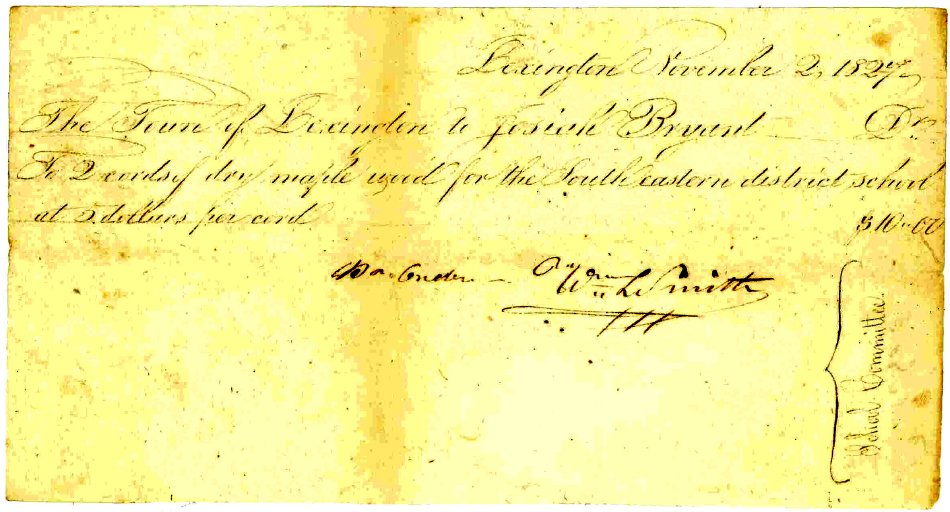 Lexington November 2, 1827
The Town of Lexington to Josiah Bryant Dr
To 2 cords of dry maple wood for the South eastern district school
at 5 dollars per cord $10-00
Wm L Smith
School Committee